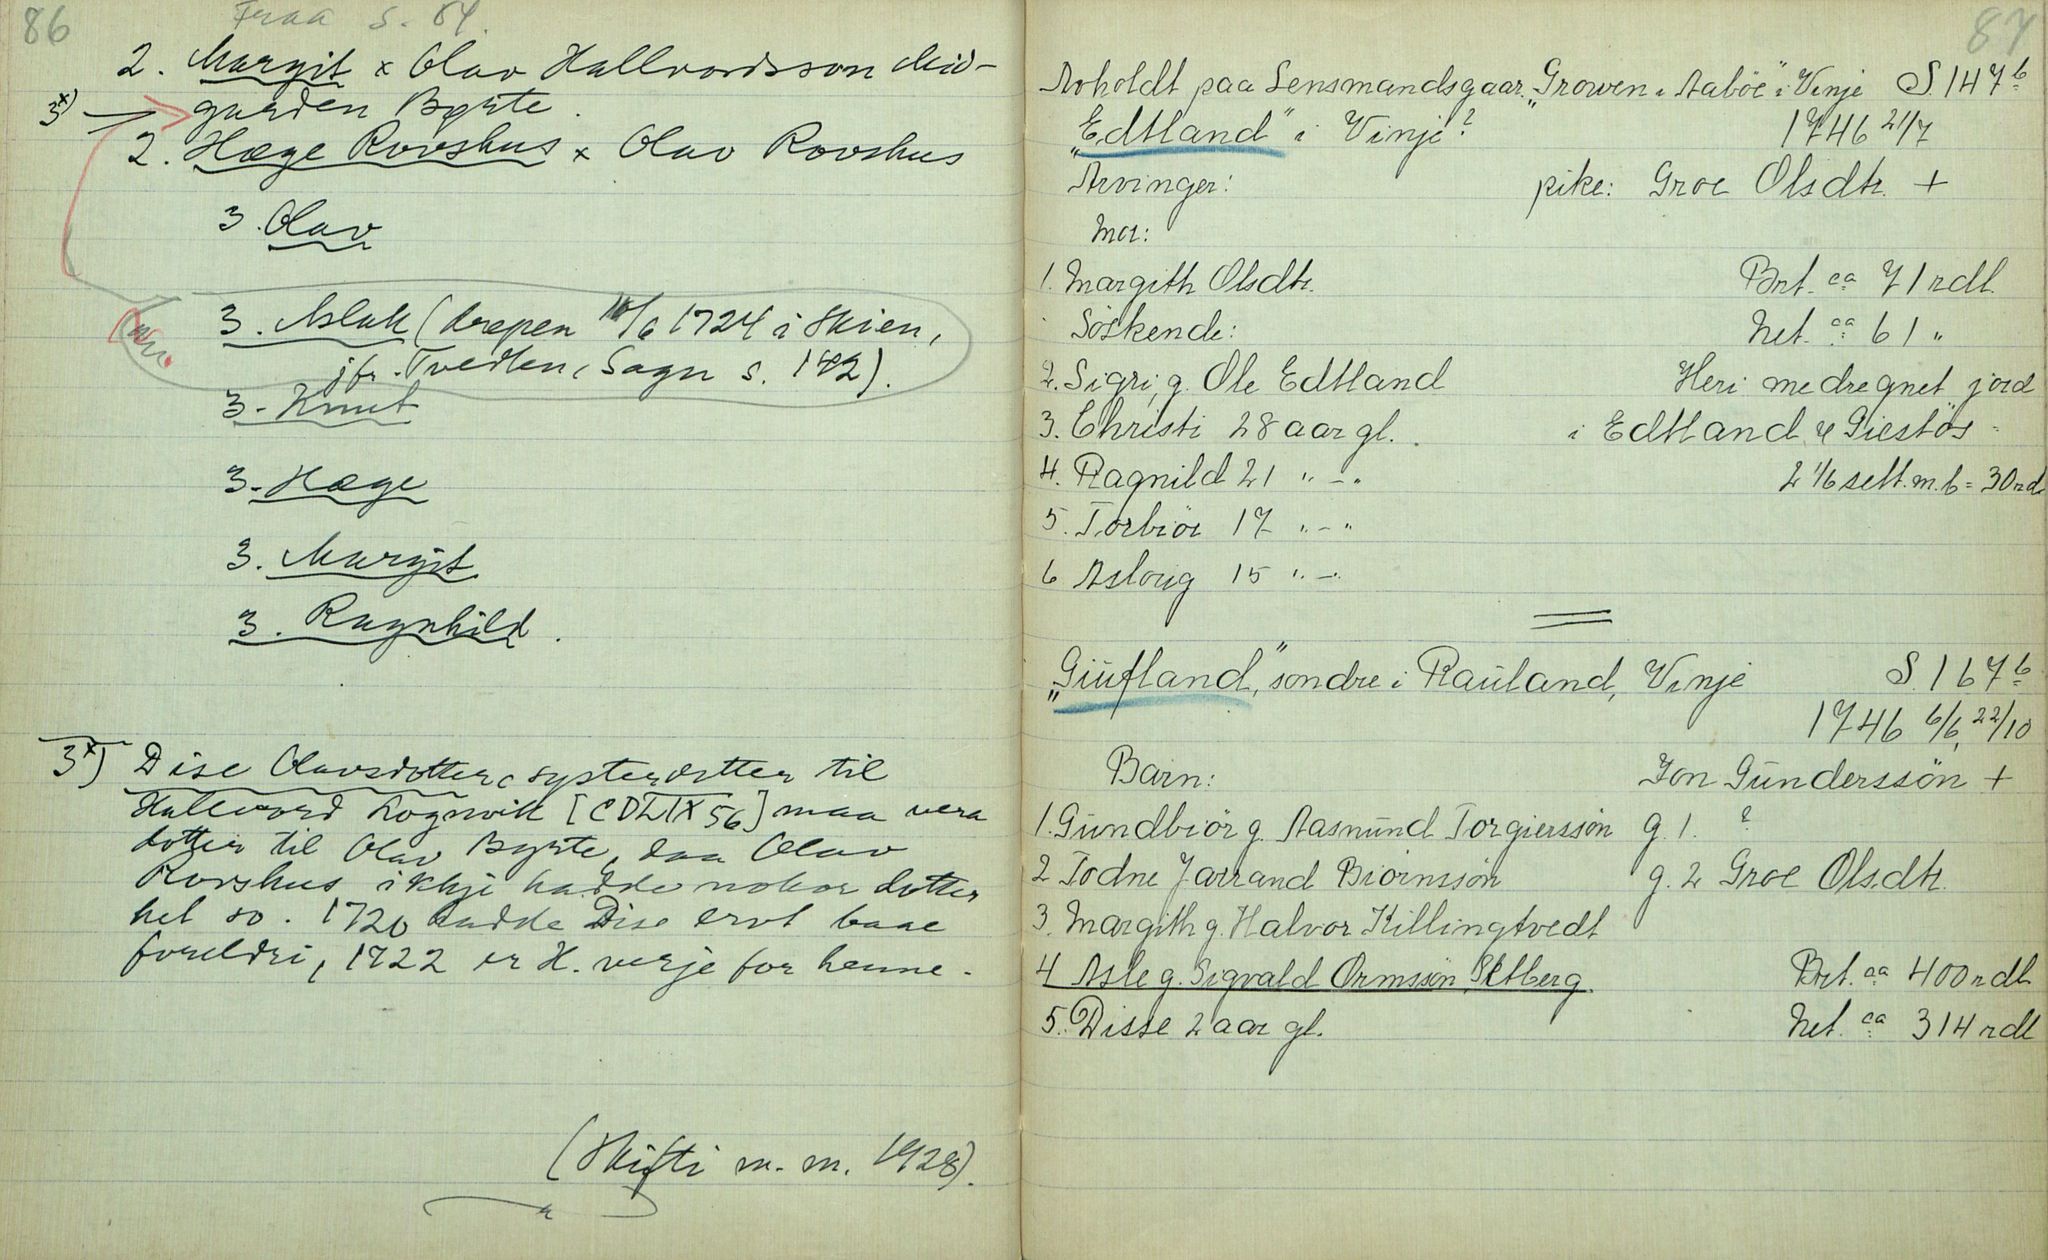 86
Fraa s. 84.
2. Margit x Olav Hallvordsson Mid-
3x) garden Byrte.
2. Hæge Rovshus x Olav Rovshus
3. Olav
3. Aslak (drepen 10/6 1724 i Skien,
jfr. Tvedten, Sagn s. 142).
3. Knut
3. Hæge
3. Margit
3. Ragnhild.
3x) Dise Olavsdotter, systerdotter til
Hallvord Lognvik [CDLIX 56] maa vera
dotter til Olav Byrte, daa Olav
Rovshus ikkje hadde nokor dotter
het so. 1720 hadde Dise ervt baae
foreldri, 1722 er H. verje for henne.
(Skifti m. m. 1928).
87
Avholdt paa Lensmandsgaar. „Growen i Aaböe" i Vinje S. 147b
„Edtland" i Vinje? 1746 21/7
Arvinger: pike: Groe Olsdtr. +
Mor:
1. Margith Olsdtr. Brt. ca 71 rdl.
Söskende: Net. ca 61 „
2. Sigri, g. Ole Edtland Heri medregnet jord
3. Christi 28 aar gl. i Edtland & Giestös =
4. Ragnild 21 „ - „ 2 1/6 sett. m. b = 30 rd
5. Torbiör 17 „ - „
6 Asloug 15 „ - „
„Giufland," söndre i Rauland, Vinje S. 167b
1746 6/6, 22/10
Barn: Jon Gunderssön +
1. Gundbiör g. Aasmund Torgierssön g. 1. ?
2 Todne Jarrand Biörnssön g. 2 Groe Olsdtr.
3. Margith g. Halvor Killingtvedt
4 Asle g. Sigvald Ormssön Setberg. Brt. ca 400 rdl
5. Disse 2 aar gl. Net. ca 314 rdl